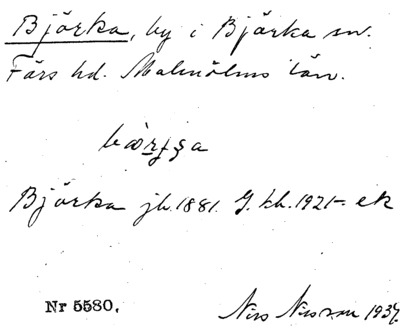 Bjärka, by i Bjärka sn.
Färs hd. Malmöhus län.
Bjärka jb. 1881. G. kb. 1921- ek
Nr 5580.
Nils Nilsson 1937.